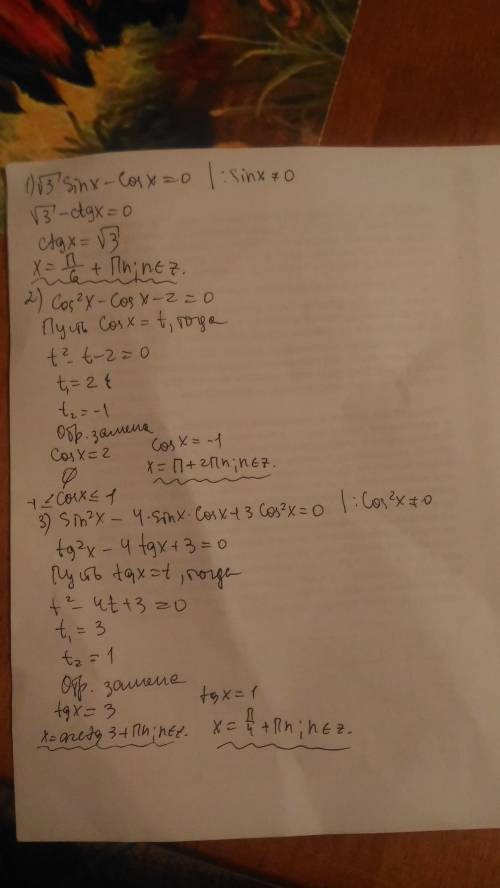 1) √3 sinx - cosx = 0 | : sinx ≠ 0
√3 - ctgx = 0
ctgx = √3
x = П/6 + Пn; n ∈ z.
2) cos²x - cosx - 2 = 0
Пусть cosx = t, тогда
t² - t - 2 = 0
t₁ = 2
t₂ = -1
Обр. замена
cosx = 2 cosx = -1
∅ x = П + 2Пn; n ∈ z.
-1 ≤ cosx ≤ 1
3) sin²x - 4·sinx·cosx + 3cos²x = 0 | : cos²x ≠ 0
tg²x - 4tgx + 3 = 0
Пусть tgx = t, тогда
t² - 4t + 3 = 0
t₁ = 3
t₂ = 1
Обр. замена
tgx = 3 tgx = 1
x = arctg 3 + Пn; n ∈ z. x = П/4 + Пn; n ∈ z.